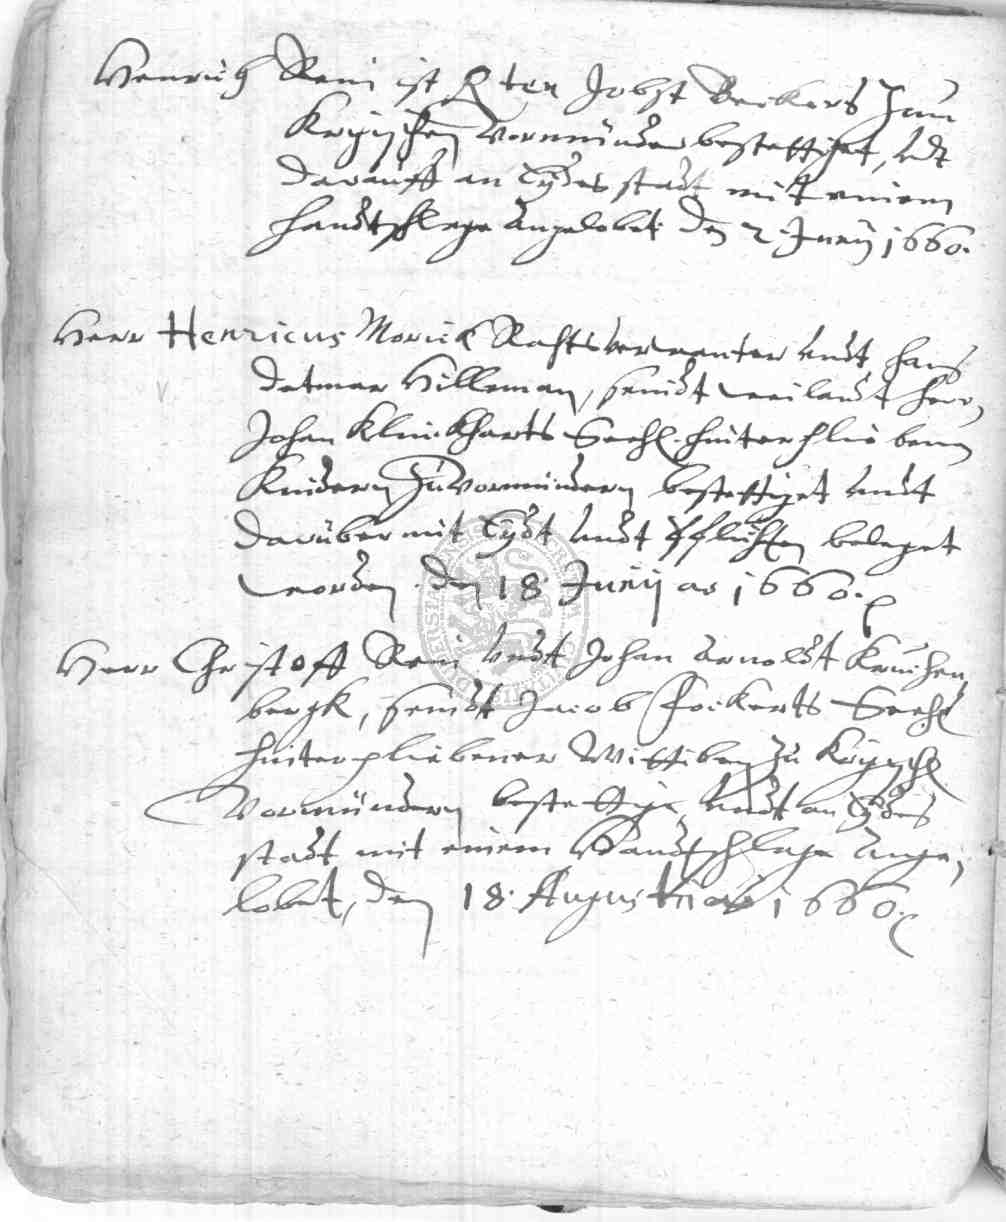 Henrich Rein ist H ten Jobst Beckers Zum
Krigischen Vormunder bestettiget, Vdt
darauff an Eydes stadt mit einem
handtschlage Angelobet den 2 Junij 1660.
Herr Henricus Morick Rahtsverwanter vndt hans
detmar Hilleman, seindt weilandt herr
Johan Klinckharts Seehl. hinterplie benen
Kindern Zu Vormündern bestettiget vndt
darüber mit Eydt vndt Pflichten beleget
worden den 18 Junij ao 1660.
Herr Christoff Rein vndt Johan Arnoldt Kruchen
bergk, seindt Jacob Fockerts Seehl
hinterpliebener Wittiben zu Krigischen
Vormündern bestettiget vndt an Eydes
stadt mit einem Handtschlage Ange,
lobet, den 18. Augusti ao 1660.